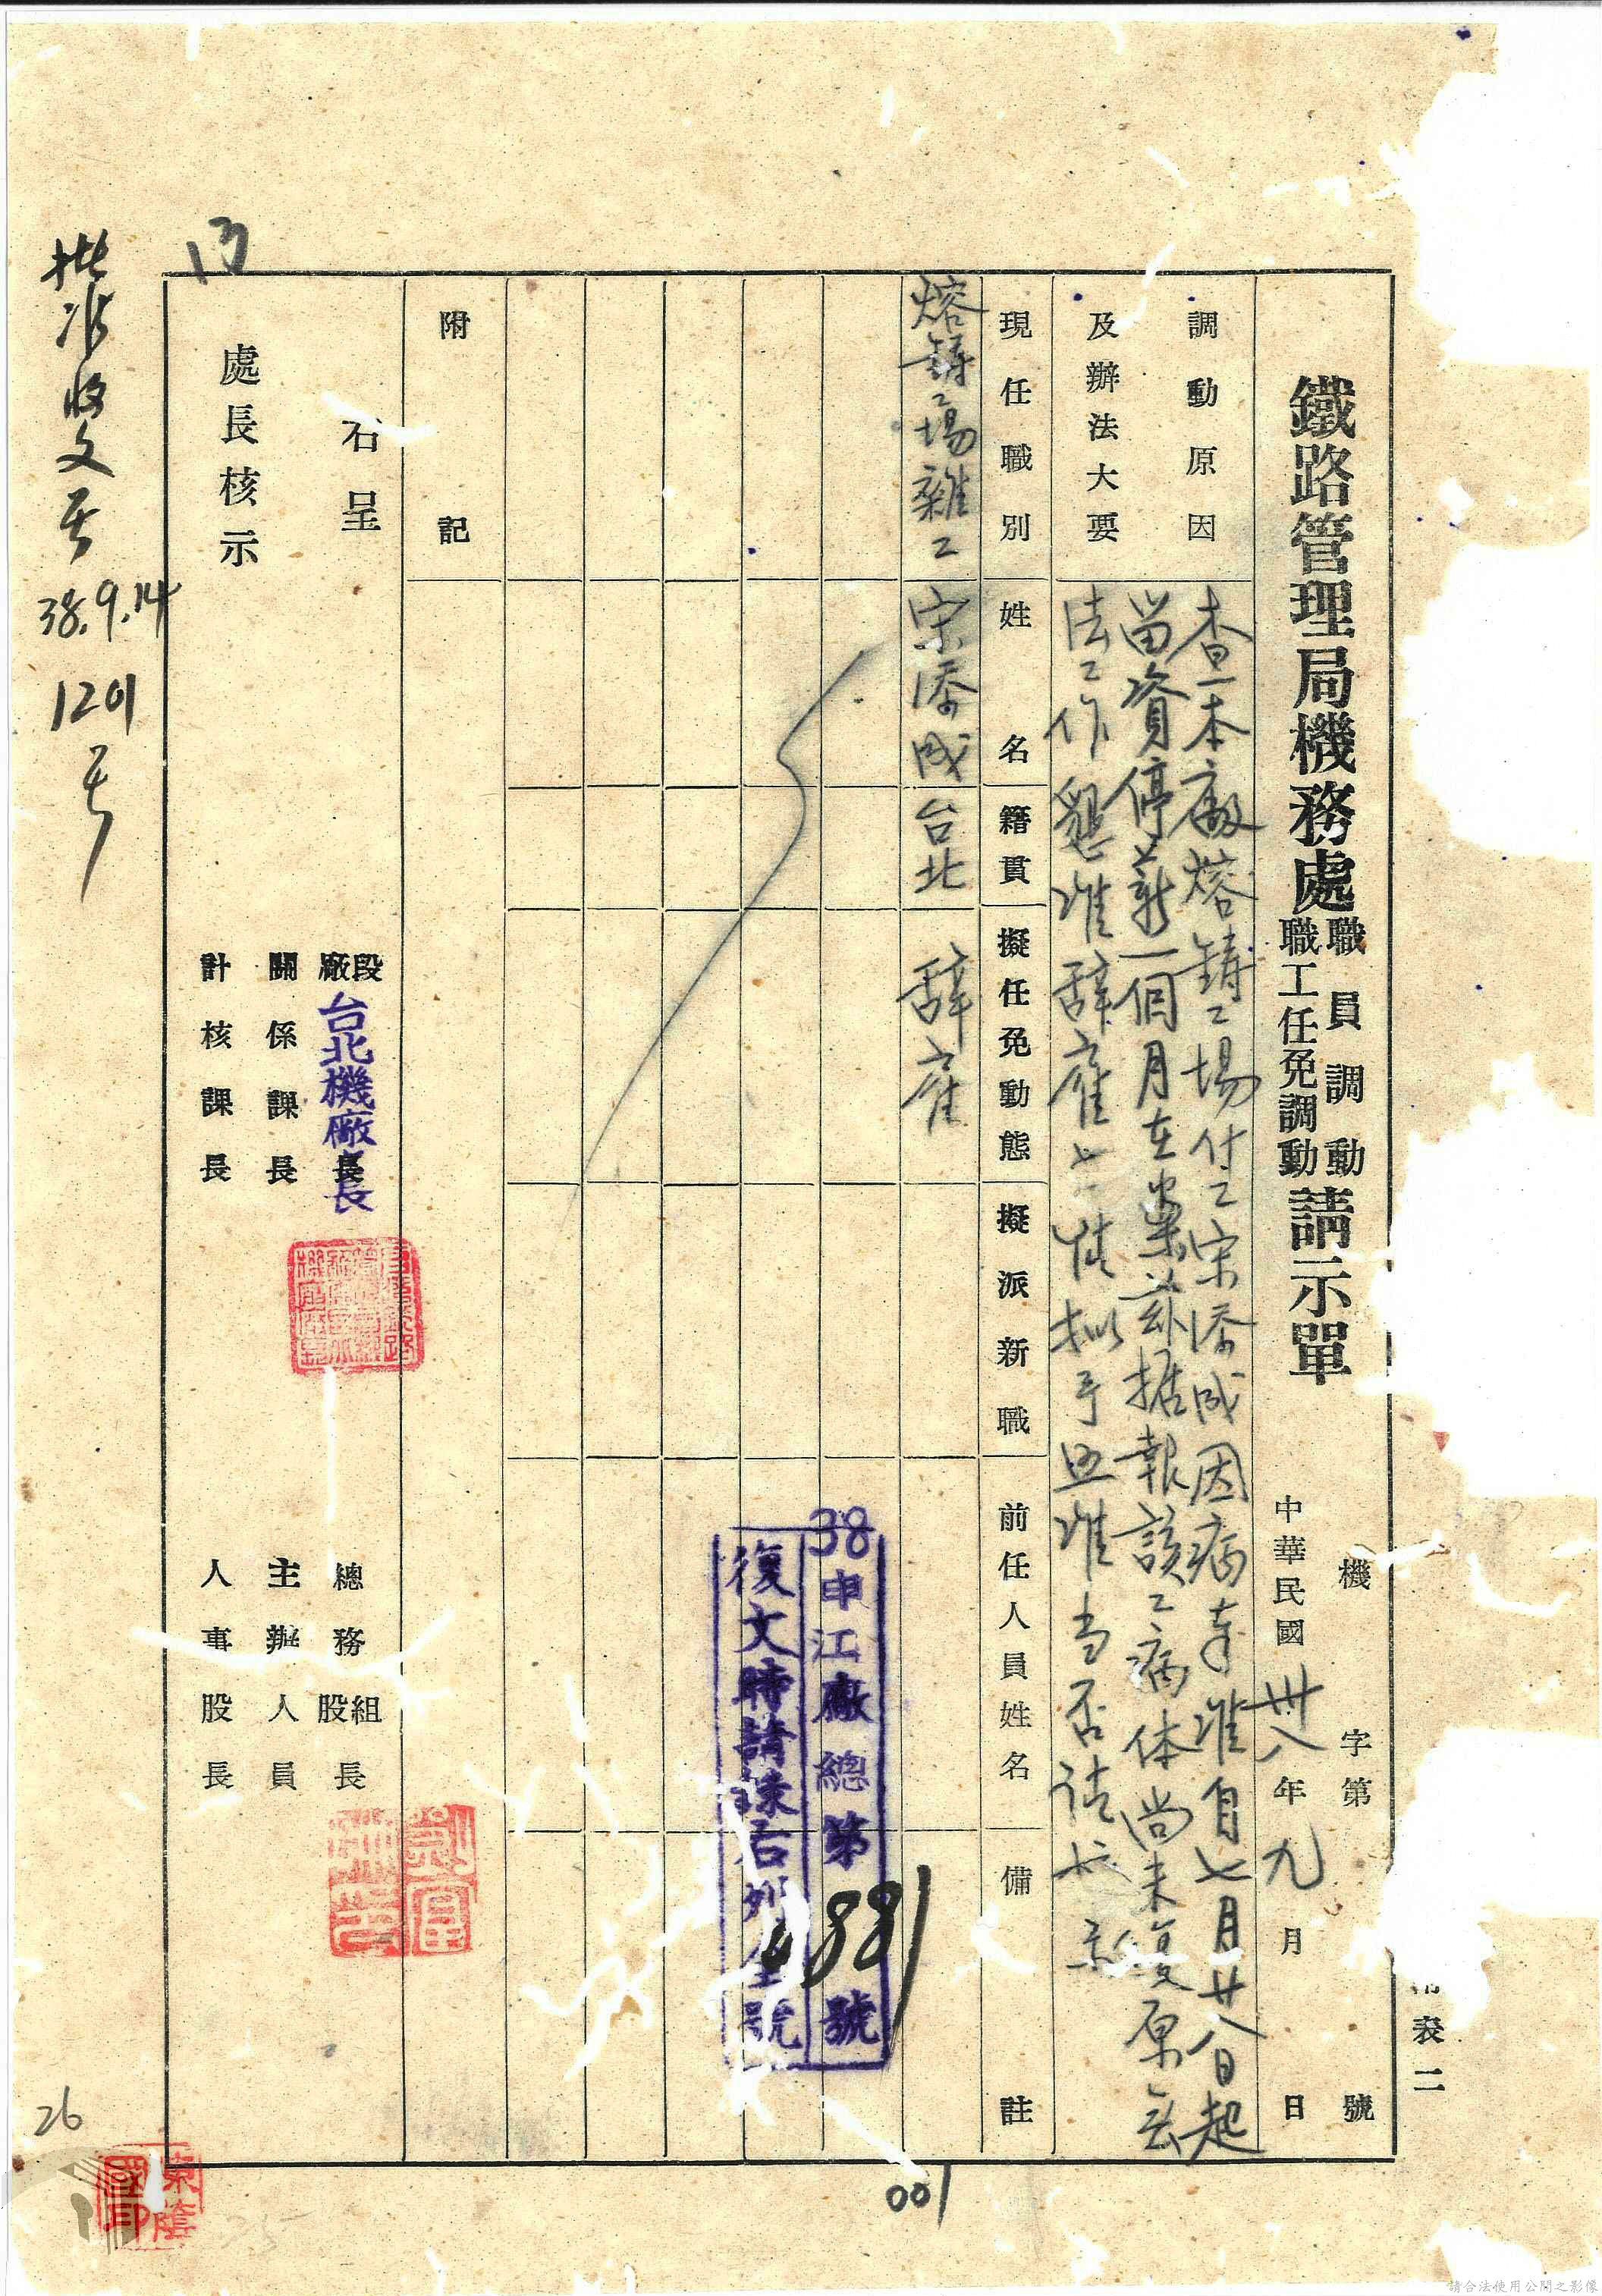 表二
機 字第 號
鐵路管理局機務處職員調動職工任免調動請示單
中華民國卅八年九月 日
調動原因
及辦法大要
查本廠熔鑄工場付工宋添成因病奉准自七月廿八日起
留資停薪一個月在案茲据報該工病体尚未復原無
法工作懇准辭雇七情拟予照准当否請核示
現任職別
姓名
籍貫
擬任免動態
擬派新職
前任人員姓名
備註
熔鑄工場雜工
宋添成
台北
辭雇
38申江廠總第 881號
復文時請 右列 號
附記
右呈
處長核示
段廠長
台北機廠長
關係課長
計核課長
總務組股長
主辦人員
人事股長
批准收文
38.9.14
1201
13
001
26
請合法使用公開之影像